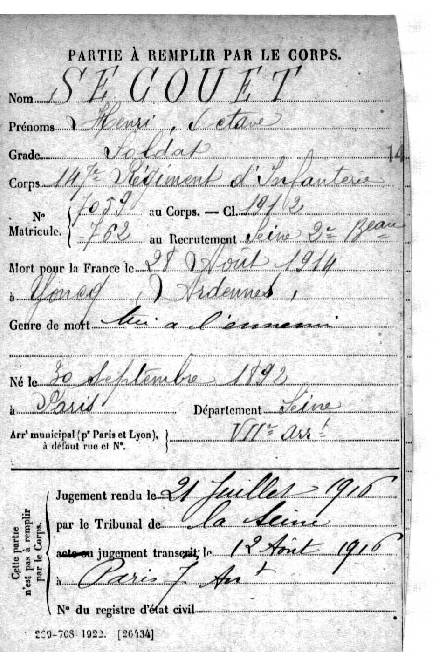 PARTIE À REMPLIR PAR LE CORPS.
Nom SECOUET
Prénoms Henri, Octave
Grade Soldat
14
Corps 147e Régiment d'Infanterie
Nº Matricule. 7059 au Corps. — Cl. 1912
762 au Recrutement Seine 2e Beau
Mort pour la France le 28 Août 1914
à Yoncq (Ardennes)
Genre de mort tué à l'ennemi
Né le 30 Septembre 1892
à Paris Département Seine
Arrt municipal (pr Paris et Lyon), à défaut rue et Nº. VIIe arrt
Cette partie n'est pas à remplir par le Corps.
Jugement rendu le 21 Juillet 1916
par le Tribunal de la Seine
acte ou jugement transcrit le 12 Août 1916
à Paris 7e Arrt
Nº du registre d'état civil
259-708 1922. [26434]